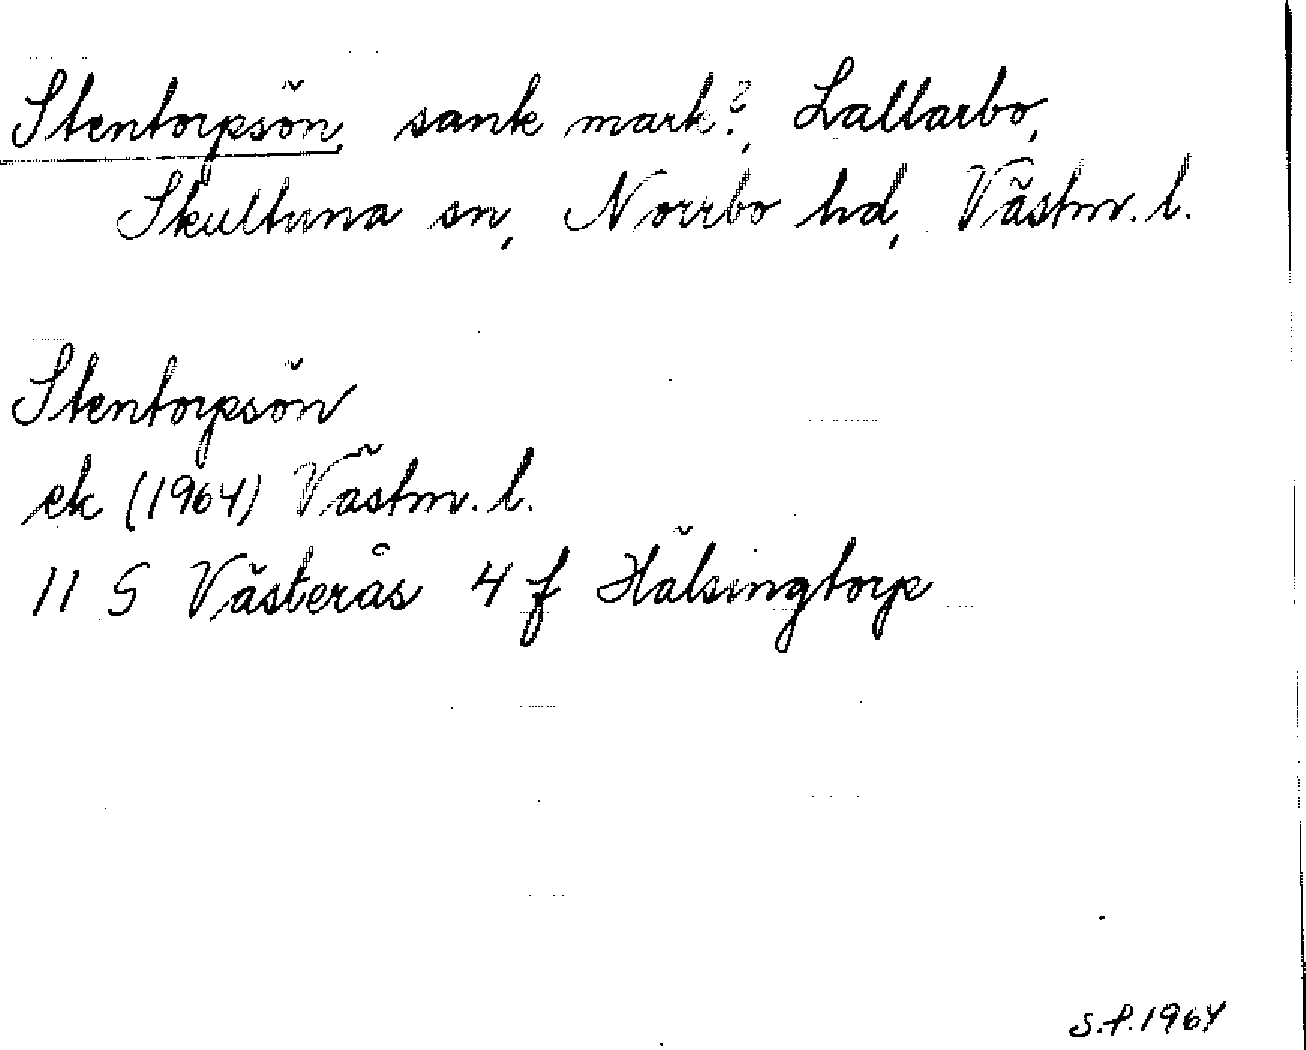 Stentorpsön, sank mark?, Lallarbo,
Skultuna sn, Norrbo hd, Västm. l.
Stentorpsön
ek (1964) Västm. l.
11 G Västerås 4 f Hälsingtorp
S.f. 1964